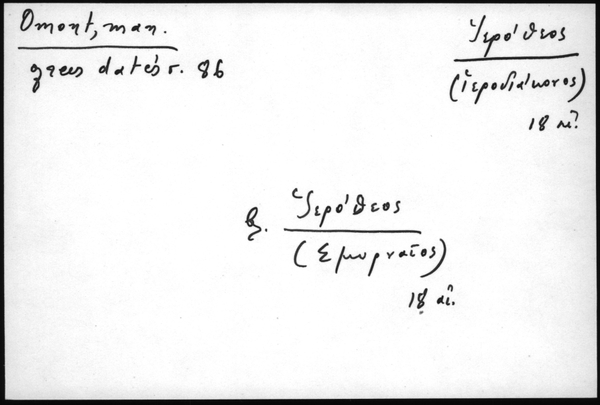 Omont, man.
grecs datés σ. 86
Ἱερόθεος
(ἱεροδιάκονος)
18 αἰ.
β. Ἱερόθεος
(Σμυρναῖος)
18 αἰ.